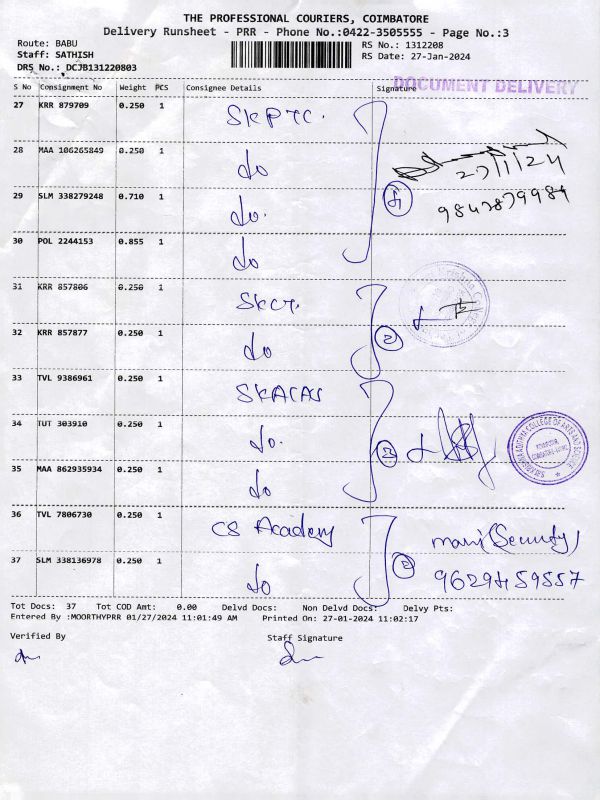 THE PROFESSIONAL COURIERS, COIMBATORE
Delivery Runsheet - PRR - Phone No.:0422-3505555 - Page No.:3
Route: BABU
Staff: SATHISH
DRS No.: DCJB131220803
RS No.: 1312208
RS Date: 27-Jan-2024
DOCUMENT DELIVERY
S No Consignment No Weight PCS Consignee Details Signature
27 KRR 879709 0.250 1 SKPTC.
28 MAA 106265849 0.250 1 do
27/1/24
29 SLM 338279248 0.710 1 do.
4
30 POL 2244153 0.855 1 do
31 KRR 857806 0.250 1 SKCT.
32 KRR 857877 0.250 1 do
2
33 TVL 9386961 0.250 1 SKACAS
34 TUT 303910 0.250 1 do.
3
35 MAA 862935934 0.250 1 do
36 TVL 7806730 0.250 1 CS Academy
mani (Security)
37 SLM 338136978 0.250 1 do
2
9629459557
Tot Docs: 37 Tot COD Amt: 0.00 Delvd Docs: Non Delvd Docs: Delvy Pts:
Entered By :MOORTHYPRR 01/27/2024 11:01:49 AM Printed On: 27-01-2024 11:02:17
Verified By Staff Signature